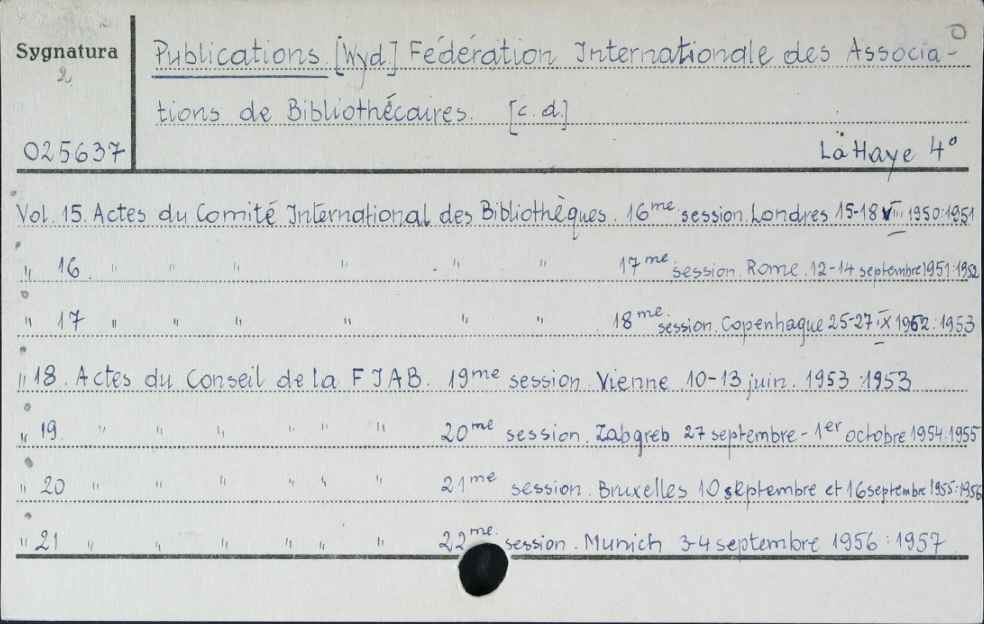 Sygnatura
2
025637
Publications [Wyd.] Fédération Internationale des Associa-
tions de Bibliothécaires. [c.d.]
La Haye 4°
Vol. 15. Actes du Comité International des Bibliothèques. 16me session. Londres 15-18 VIII 1950:1951
" 16. " " " " " " 17me session. Rome. 12-14 septembre 1951:1952
" 17 " " " " " " 18me session. Copenhague 25-27 IX 1952:1953
" 18. Actes du Conseil de la FIAB. 19me session. Vienne 10-13 juin. 1953:1953
" 19. " " " " " " 20me session. Zabgreb 27 septembre - 1er octobre 1954:1955
" 20 " " " " " " 21me session. Bruxelles 10 septembre et 16 septembre 1955:1956
" 21 " " " " " " 22me session. Munich 3-4 septembre 1956:1957